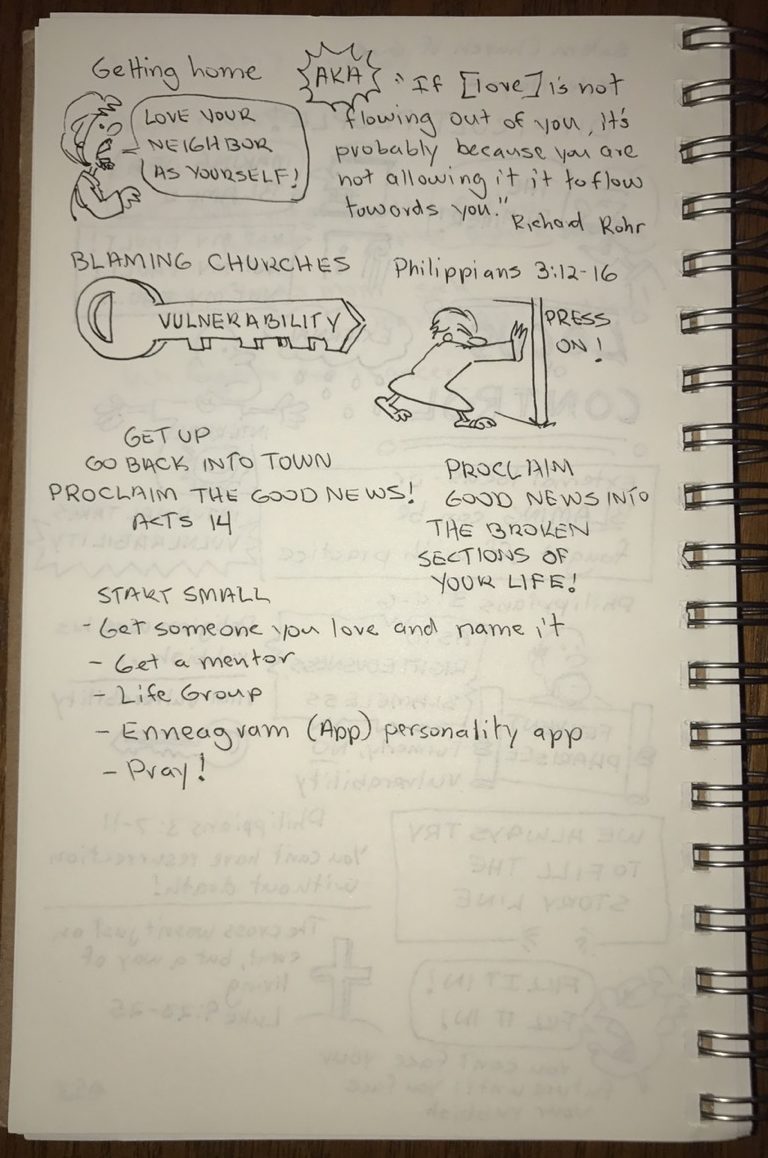 Getting home
LOVE YOUR
NEIGHBOR
AS YOURSELF!
AKA
"If [love] is not
flowing out of you, it's
probably because you are
not allowing it it to flow
towards you."
Richard Rohr
BLAMING CHURCHES
VULNERABILITY
Philippians 3:12-16
PRESS
ON!
GET UP
GO BACK INTO TOWN
PROCLAIM THE GOOD NEWS!
ACTS 14
PROCLAIM
GOOD NEWS INTO
THE BROKEN
SECTIONS OF
YOUR LIFE!
START SMALL
- Get someone you love and name it
- Get a mentor
- Life Group
- Enneagram (App) personality app
- Pray!